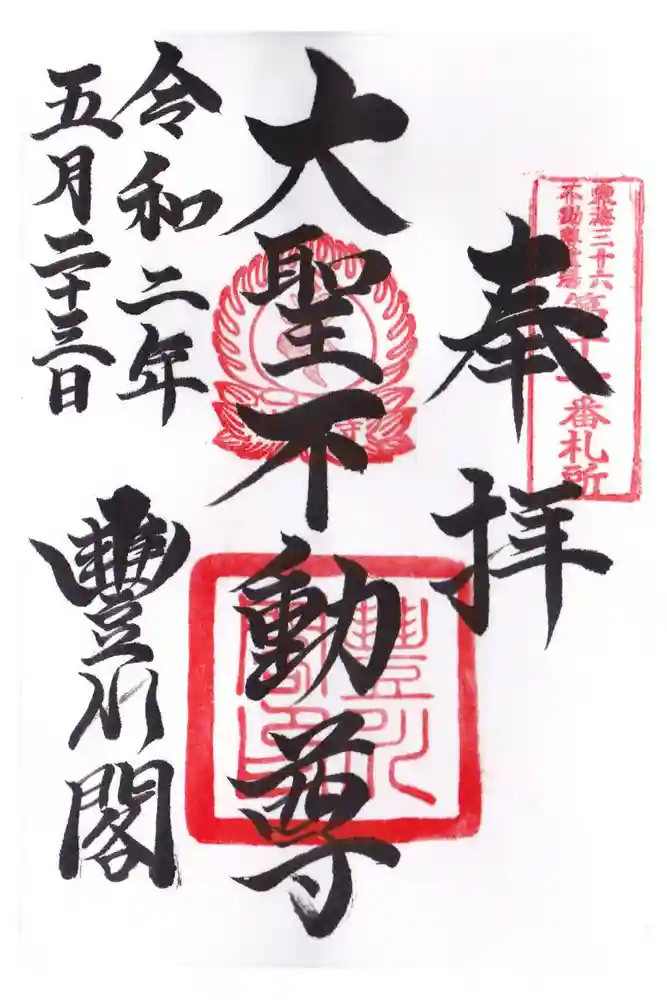 奉拝
東海三十六
不動尊霊場
第十一番札所
大聖不動尊
豐川
閣印
令和二年
五月二十三日
豐川閣